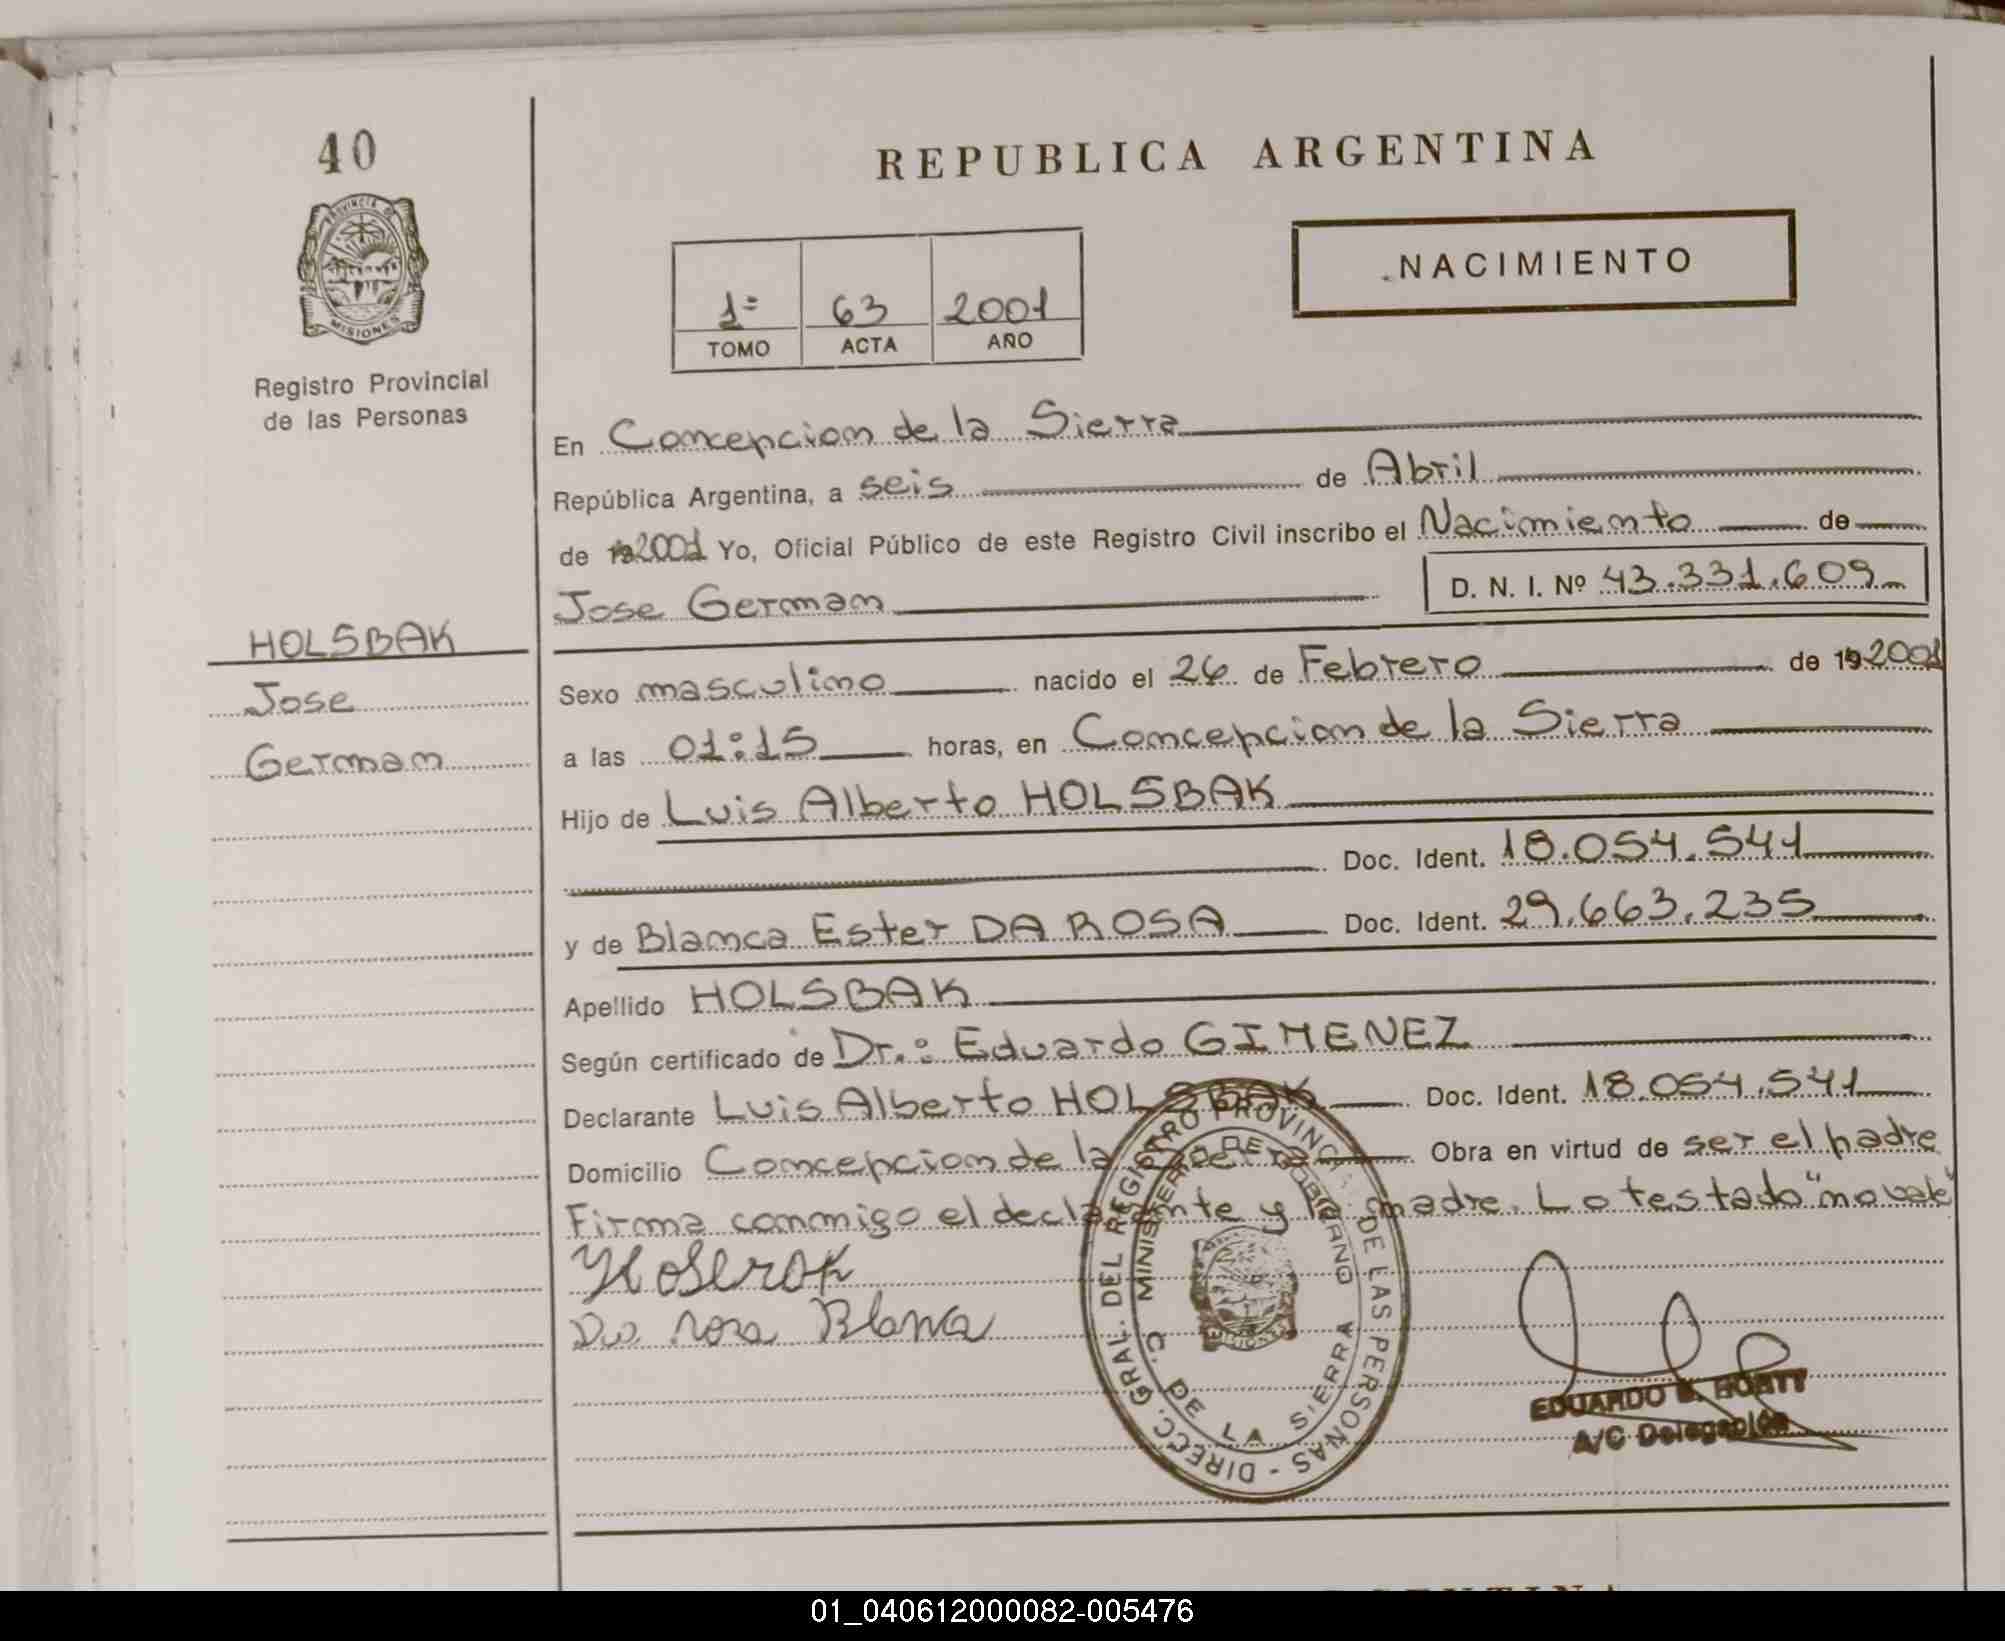 40
REPUBLICA ARGENTINA
PROVINCIA DE
MISIONES
Registro Provincial
de las Personas
1º 63 2001
TOMO ACTA AÑO
NACIMIENTO
En Concepcion de la Sierra
República Argentina, a seis de Abril
de 192001 Yo, Oficial Público de este Registro Civil inscribo el Nacimiento de
Jose German D. N. I. Nº 43.331.609
HOLSBAK
Jose
German
Sexo masculino nacido el 26 de Febrero de 192001
a las 01:15 horas, en Concepcion de la Sierra
Hijo de Luis Alberto HOLSBAK
Doc. Ident. 18.054.541
y de Blanca Ester DA ROSA Doc. Ident. 29.663.235
Apellido HOLSBAK
Según certificado de Dr.: Eduardo GIMENEZ
Declarante Luis Alberto HOLSBAK Doc. Ident. 18.054.541
Domicilio Concepcion de la Sierra Obra en virtud de ser el padre
Firma conmigo el declarante y la madre. Lo testado "no vale"
Da rosa Blanca
DIRECC. GRAL. DEL REGISTRO PROVINC. DE LAS PERSONAS -
MINISTERIO DE GOBIERNO
C. DE LA SIERRA
MISIONES
EDUARDO
A/C Delegación
01_040612000082-005476